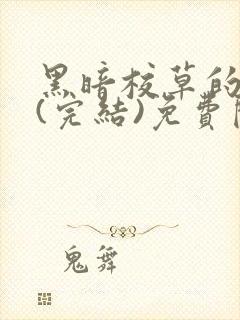 黑暗校草的
(完結)免費
鬼舞